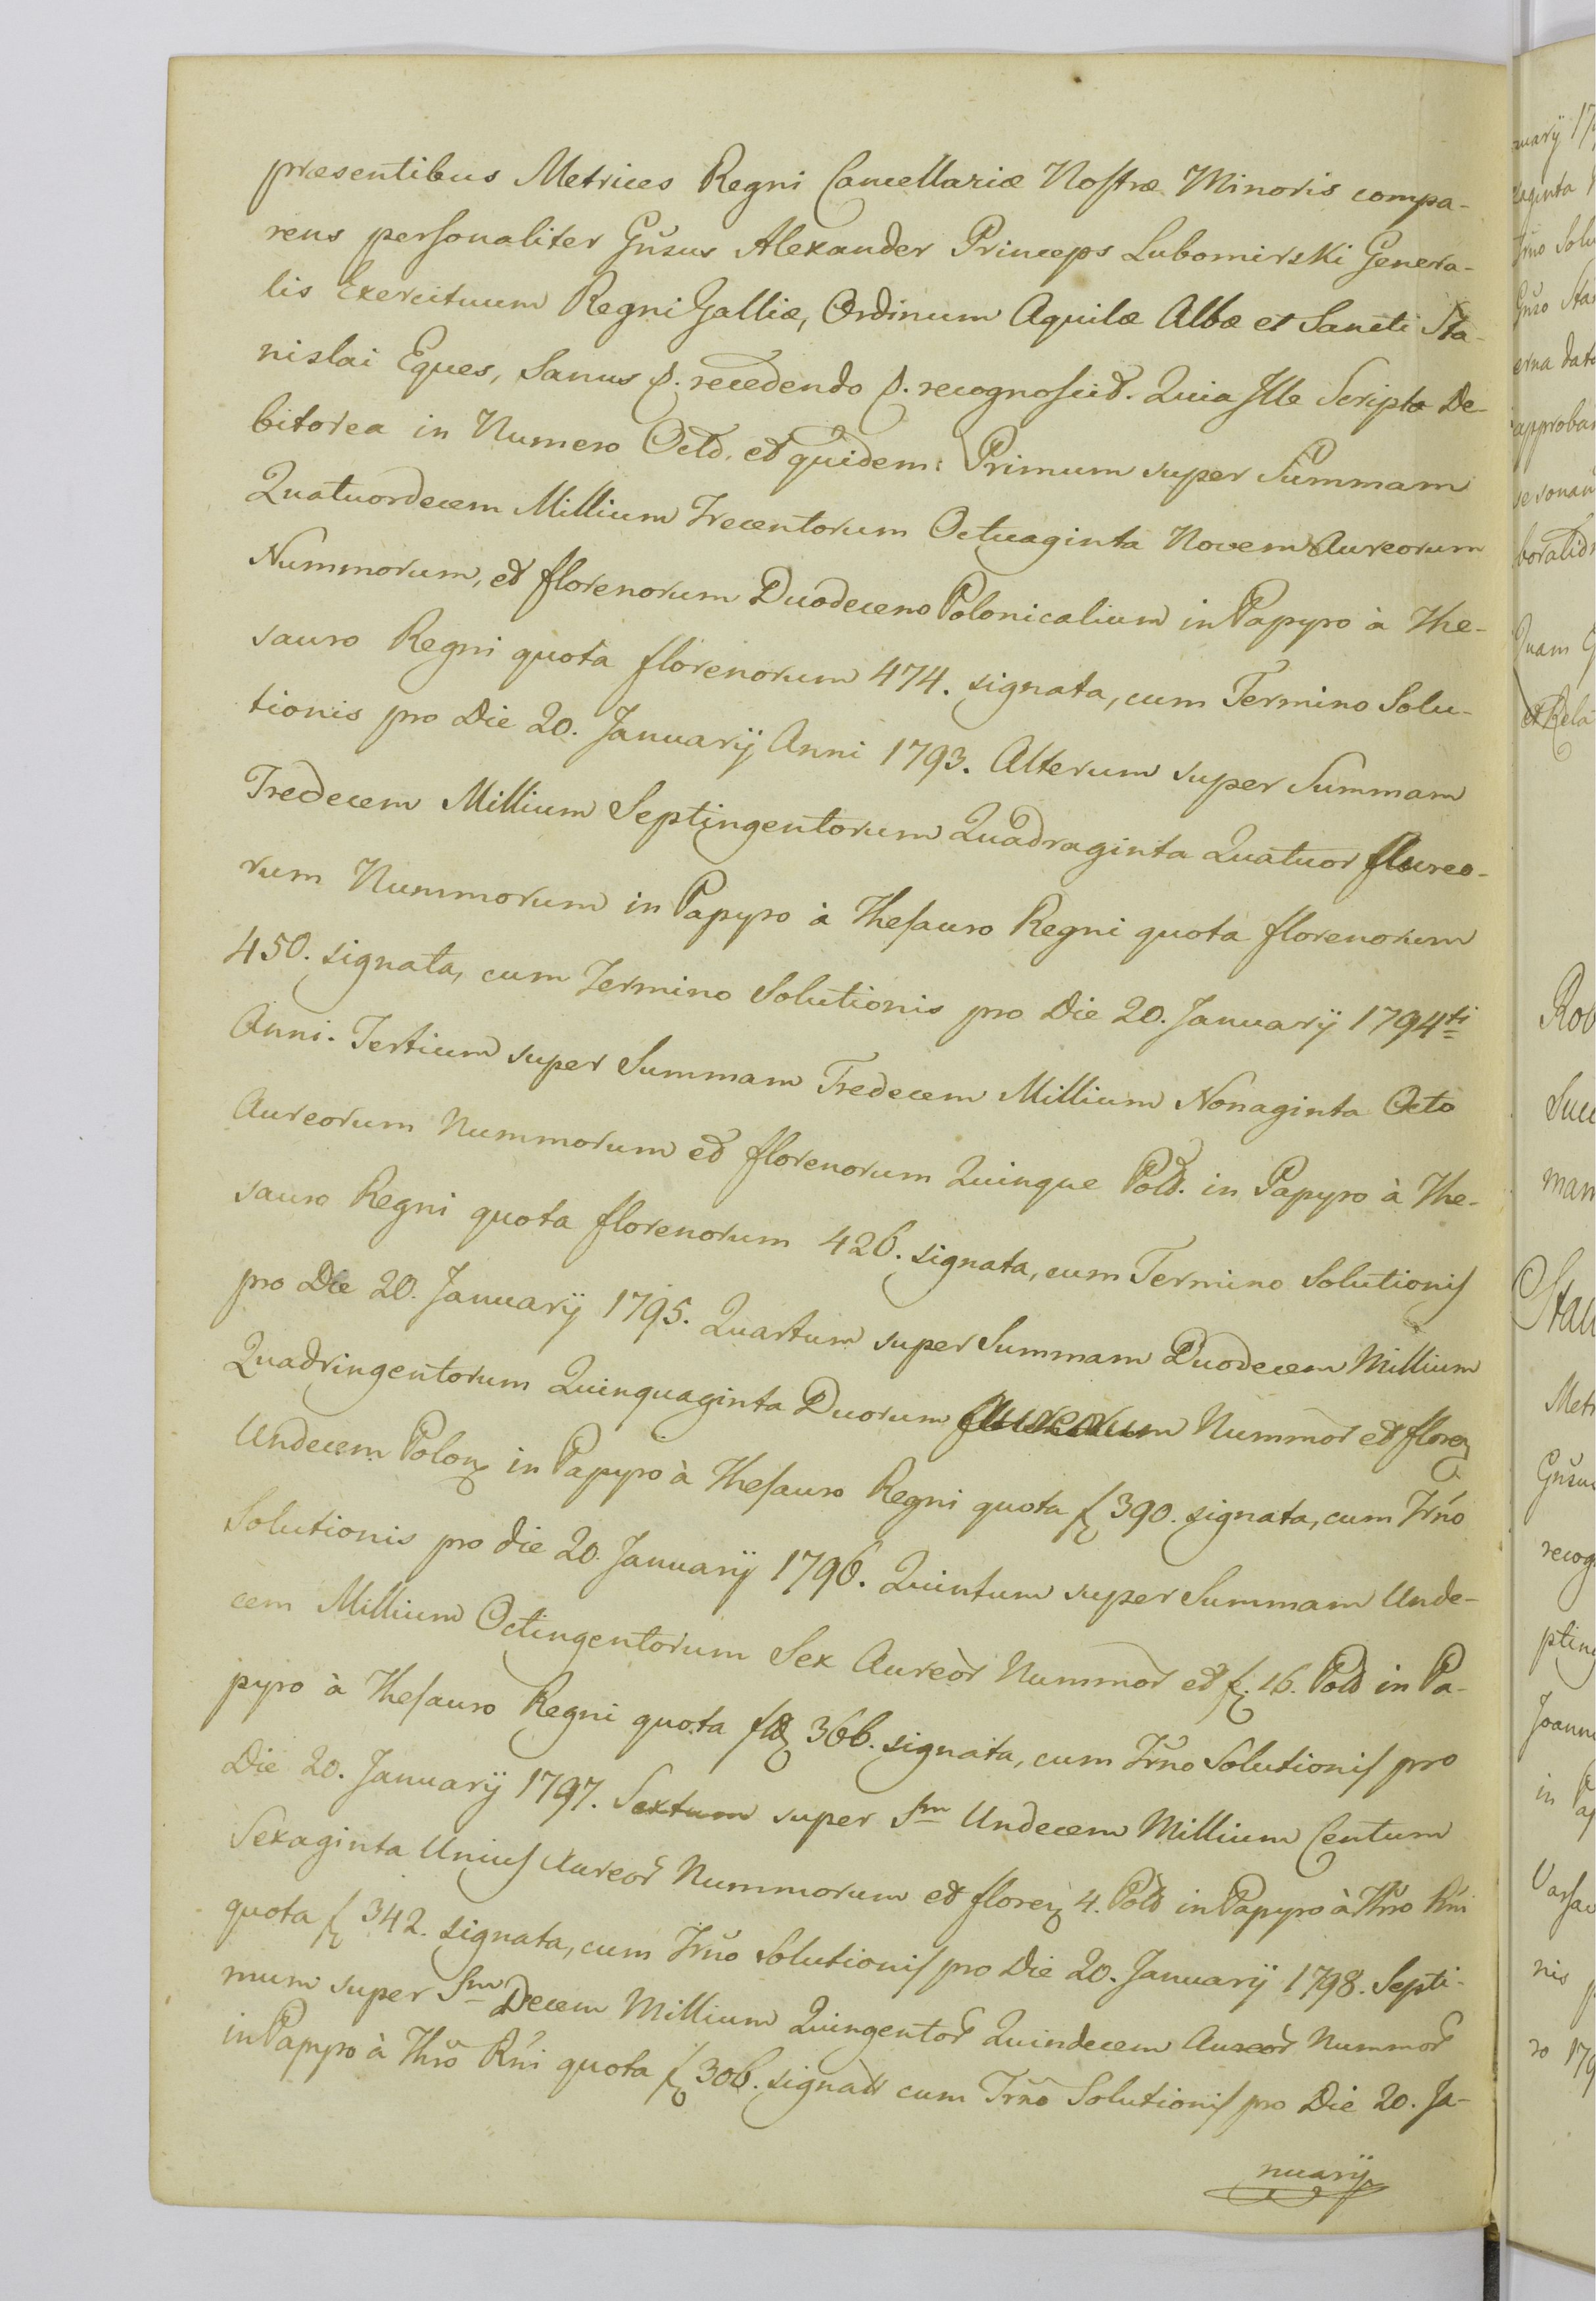 præsentibus Metrices Regni Cancellariæ Nostræ Minoris compa-
rens personaliter Gñsus Alexander Princeps Lubomirski Genera-
lis Exercituum Regni Galliæ, Ordinum Aquilæ Albæ et Sancti Sta-
nislai Eques, Sanus p. recedendo p. recognoscit. Quia Ille Scripta De-
bitorea in Numero Octo, et quidem: Primum super Summam
Quatuordecem Millium Trecentorum Octuaginta Novem Aureorum
Nummorum, et florenorum Duodeceno Polonicalium in Papyro à The-
sauro Regni quota florenorum 474. signata, cum Termino Solu-
tionis pro Die 20. Januarij Anni 1793. Alterum super Summam
Tredecem Millium Septingentorum Quadraginta Quatuor Aureo-
rum Nummorum in Papyro à Thesauro Regni quota florenorum
450. signata, cum Termino Solutionis pro Die 20. Januarij 1794ti
Anni. Tertium super Summam Tredecem Millium Nonaginta Octo
Aureorum Nummorum et florenorum Quinque Pold. in Papyro à The-
sauro Regni quota florenorum 426. signata, cum Termino Solutionis
pro Die 20. Januarij 1795. Quartum super Summam Duodecem Millium
Quadringentorum Quinquaginta Duorum Aureorum Nummor et floren
Undecem Polon in Papyro à Thesauro Regni quota f 390. signata, cum Trño
Solutionis pro die 20. Januarij 1796. Quintum super Summam Unde-
cem Millium Octingentorum Sex Aureor Nummor et f. 16. Pold in Pa-
pyro à Thesauro Regni quota fl 366. signata, cum Trño Solutionis pro
Die 20. Januarij 1797. Sextum super Sm Undecem Millium Centum
Sexaginta Unius Aureor Nummorum et floren 4. Pold in Papyro à Thro Rni
quota f 342. signata, cum Trño Solutionis pro Die 20. Januarij 1798. Septi-
mum super Sm Decem Millium Quingentor Quindecem Aureor Nummor
in Papyro à Thro Rni quota f 306. signata cum Trño Solutionis pro Die 20. Ja-
nuarij